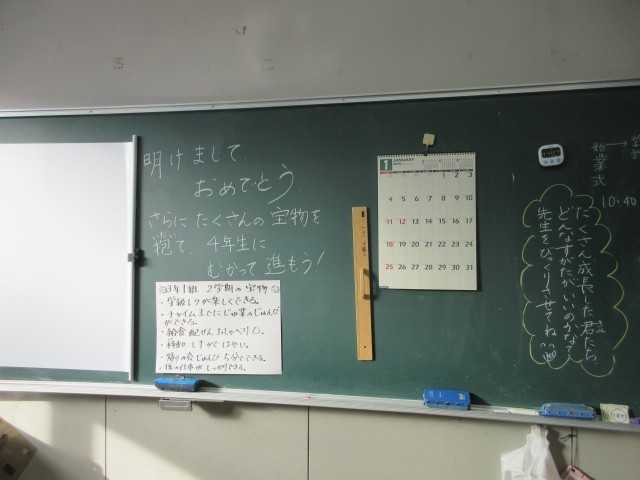 明けまして
おめでとう
さらに たくさんの 宝物を
て、4年生に
むかって 進もう!
3年1組 2学期の宝物
・学級レクが楽しくできる。
・チャイムまでにじゅ業のじゅんび
ができる。
・給食配ぜんおしゃべり0。
・移動 しずかではやい。
・帰りの会じゅんび 5分でできる。
1
JANUARY
1 2 3
4 5 6 7 8 9 10
11 12 13 14 15 16 17
18 19 20 21 22 23 24
25 26 27 28 29 30 31
始業式
10:40
たくさん成長した君たち、
どんなすがたがいいのかな?
先生をびっくりさせてね